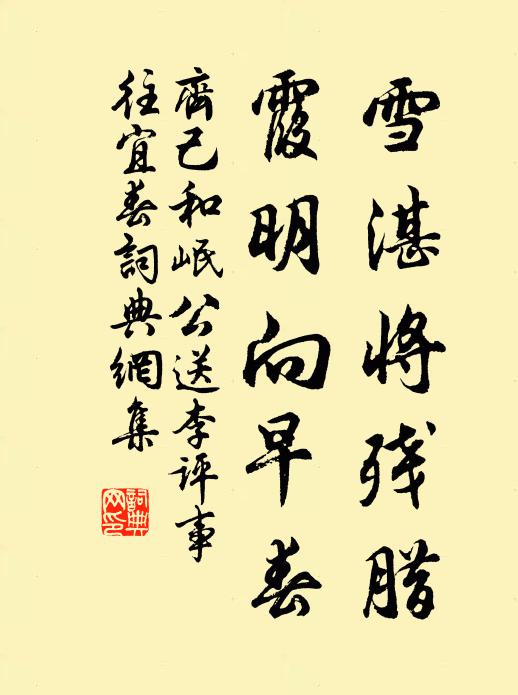 雪湛将残腊
霞明向早春
齊己和岷公送李评事
往宜春詞典網集
詞典网印